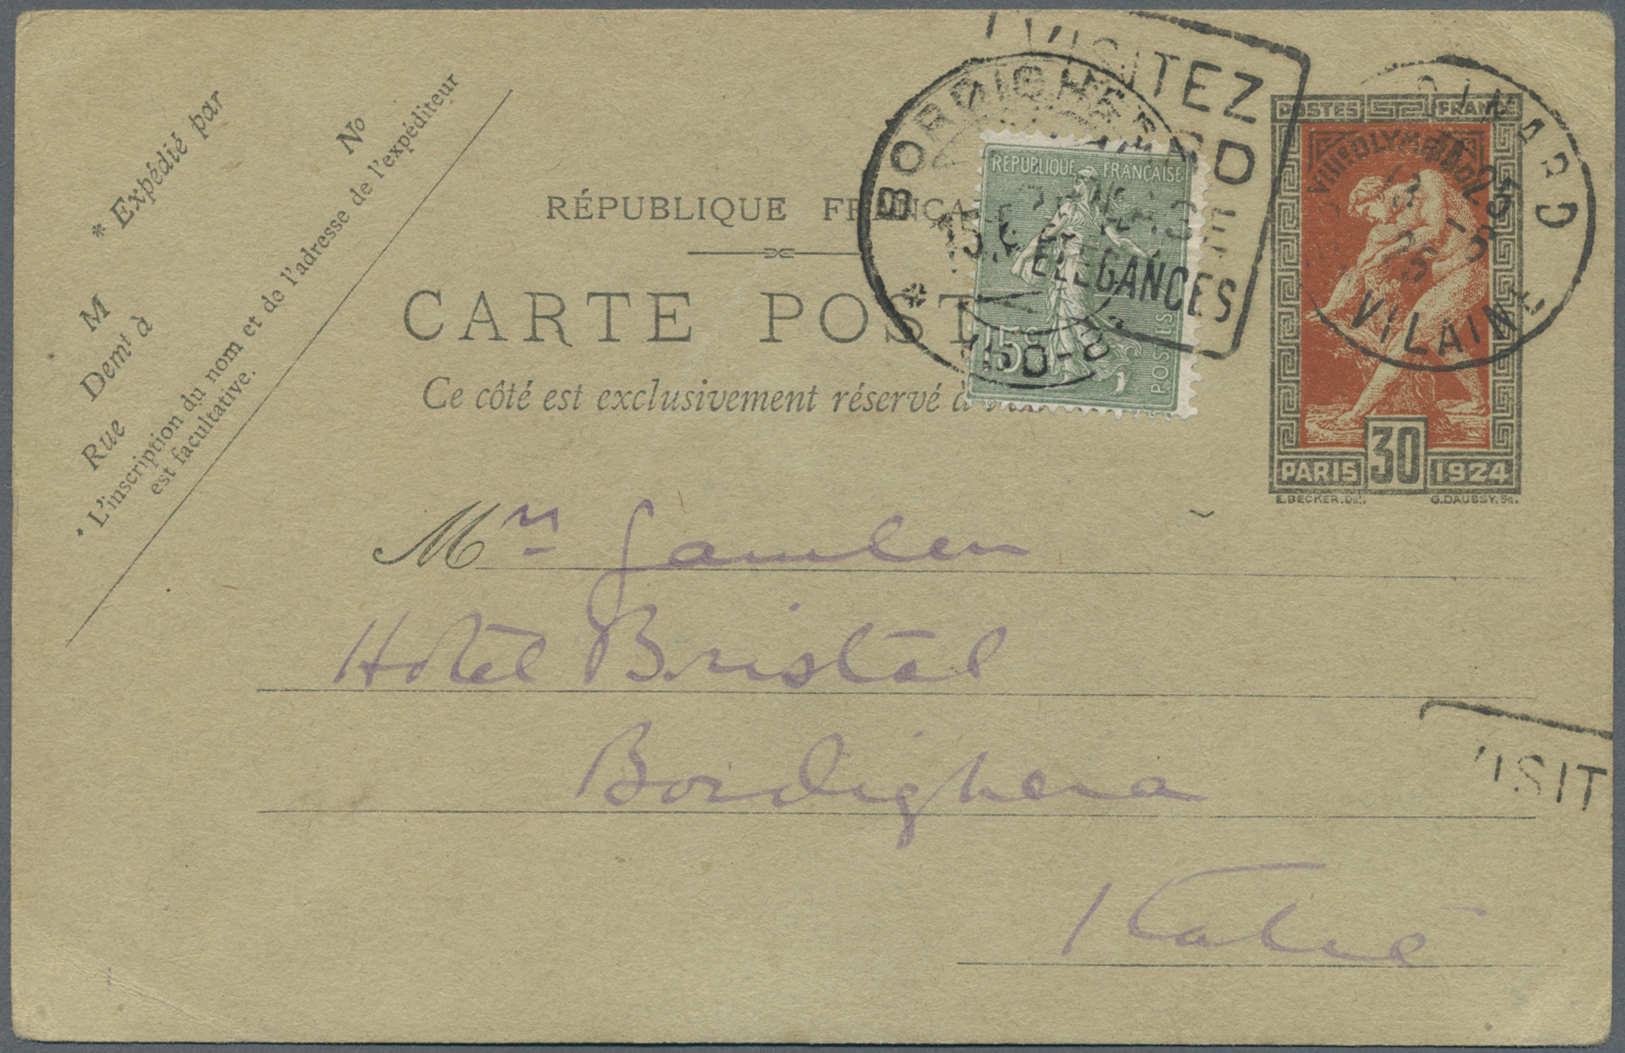 * Expédié par
No
M
Demt à
Rue
* L'inscription du nom et de l'adresse de l'expéditeur
est facultative.
RÉPUBLIQUE FRANÇA
CARTE POST
Ce côté est exclusivement réservé à
VISITEZ
RD
ÉLÉGANCES
BORDIGHERA
RÉPUBLIQUE FRANÇAISE
15c
POSTES
POSTES FRAN
VIIIe OLYMPIADE
PARIS 30 1924
E.BECKER.Del. G.DAUSSY.Sc.
DINARD
25
VILAINE
Mrs Gamlen
Hotel Bristol
Bordighera
Italie
VISIT